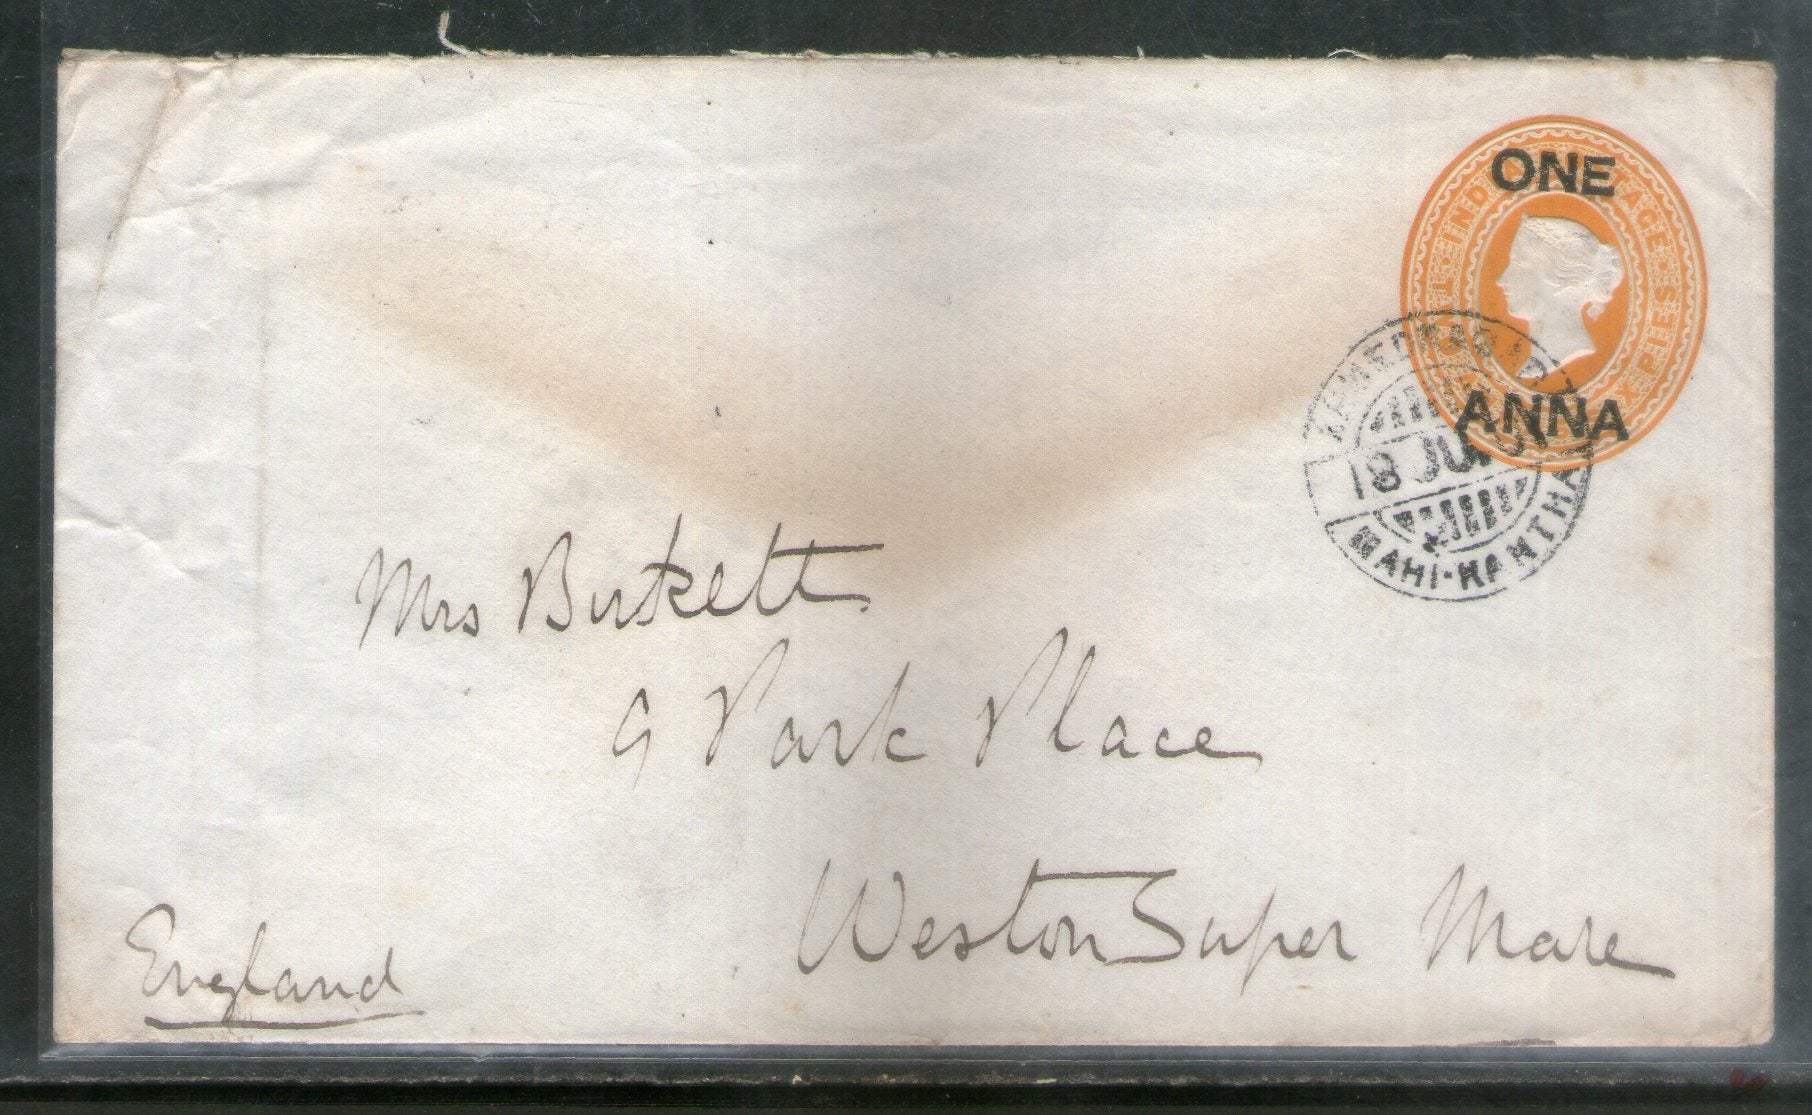 ONE
ANNA
18 JU
MAHI-KANTHA
Mrs Birkett
9 Park Place
Weston Super Mare
England